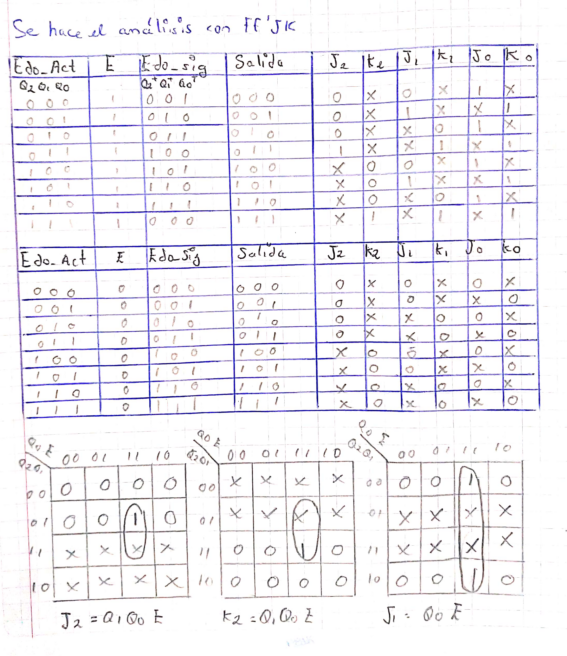 Se hace el análisis con FF'JK
Edo_Act E Edo_sig Salida J2 K2 J1 K1 J0 K0
Q2 Q1 Q0 Q2+ Q1+ Q0+
0 0 0 1 0 0 1 0 0 0 0 X 0 X 1 X
0 0 1 1 0 1 0 0 0 1 0 X 1 X X 1
0 1 0 1 0 1 1 0 1 0 0 X X 0 1 X
0 1 1 1 1 0 0 0 1 1 1 X X 1 X 1
1 0 0 1 1 0 1 1 0 0 X 0 0 X 1 X
1 0 1 1 1 1 0 1 0 1 X 0 1 X X 1
1 1 0 1 1 1 1 1 1 0 X 0 X 0 1 X
1 1 1 1 0 0 0 1 1 1 X 1 X 1 X 1
Edo_Act E Edo_Sig Salida J2 K2 J1 K1 J0 K0
0 0 0 0 0 0 0 0 0 0 0 X 0 X 0 X
0 0 1 0 0 0 1 0 0 1 0 X 0 X X 0
0 1 0 0 0 1 0 0 1 0 0 X X 0 0 X
0 1 1 0 0 1 1 0 1 1 0 X X 0 X 0
1 0 0 0 1 0 0 1 0 0 X 0 0 X 0 X
1 0 1 0 1 0 1 1 0 1 X 0 0 X X 0
1 1 0 0 1 1 0 1 1 0 X 0 X 0 0 X
1 1 1 0 1 1 1 1 1 1 X 0 X 0 X 0
Q0 E Q0 E Q0 E
Q2Q1 00 01 11 10 Q2Q1 00 01 11 10 Q2Q1 00 01 11 10
00 0 0 0 0 00 X X X X 00 0 0 1 0
01 0 0 1 0 01 X X X X 01 X X X X
11 X X X X 11 0 0 1 0 11 X X X X
10 X X X X 10 0 0 0 0 10 0 0 1 0
J2 = Q1 Q0 E K2 = Q1 Q0 E J1 = Q0 E